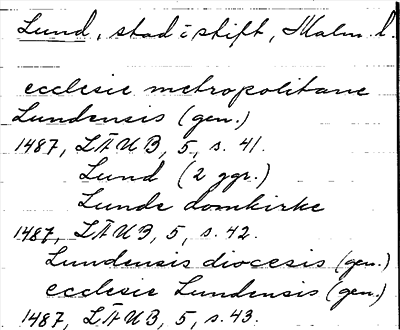 Lund, stad i stift, Malm. l.
ecclesie metropolitane
Lundensis (gen.)
1487, LÄUB, 5, s. 41.
Lund (2 ggr.)
Lunde domkirke
1487, LÄUB, 5, s. 42.
Lundensis diocesis (gen.)
ecclesie Lundensis (gen.)
1487, LÄUB, 5, s. 43.